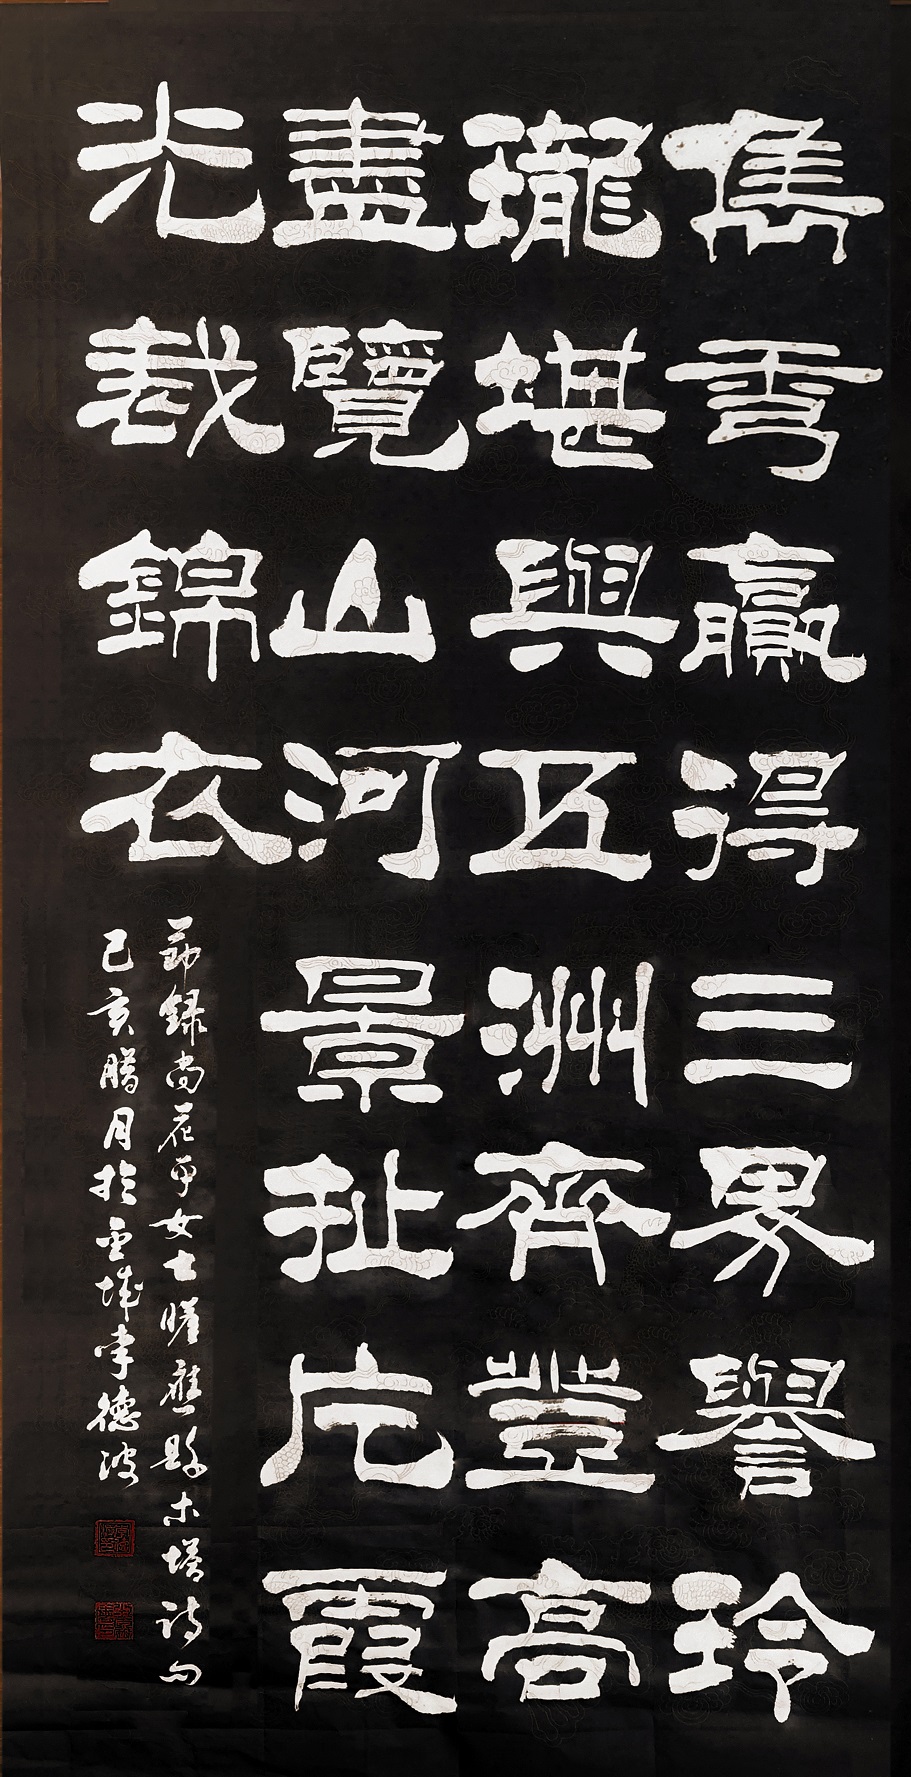 雋秀贏得三界譽玲
瓏堪與五洲齊登高
盡覽山河景扯片霞
光裁錦衣
節錄尚花甲女士賦應縣木塔詩句
己亥臘月於雲城李德波